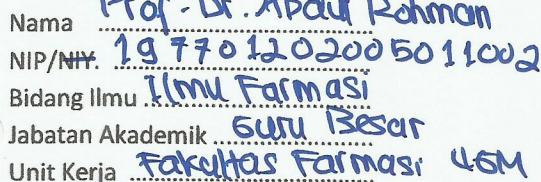 Nama Prof. Dr. Abdul Rohman
NIP/NIY. 197701202005011002
Bidang Ilmu Ilmu Farmasi
Jabatan Akademik Guru Besar
Unit Kerja Fakultas Farmasi UGM